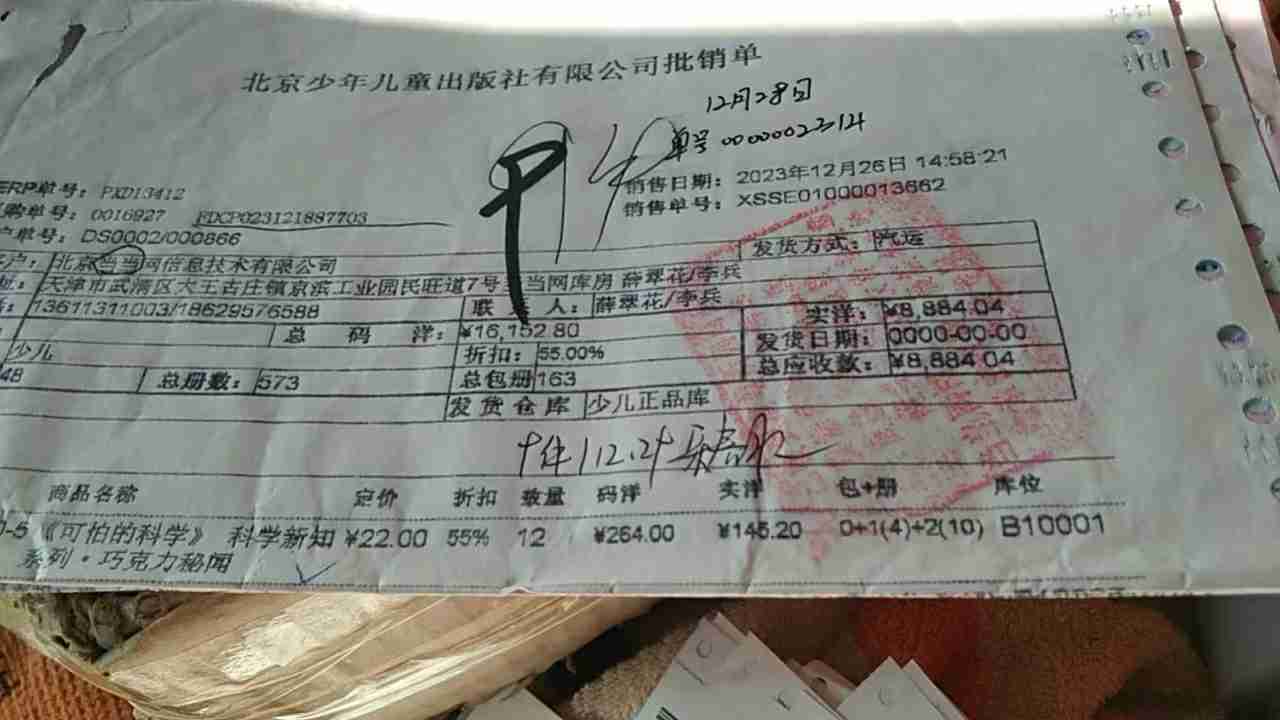 北京少年儿童出版社有限公司批销单
12月28日
单号 0000002314
ERP单号： PXD13412
销售日期： 2023年12月26日 14:58:21
购单号： 0016927 FDCP023121887703
销售单号： XSSE01000013662
户单号： DS0002/000866
户： 北京当当网信息技术有限公司 发货方式： 汽运
址： 天津市武清区大王古庄镇京滨工业园民旺道7号 当网库房 薛翠花/李兵
13611311003/18629576588 联 人： 薛翠花/李兵 实洋： ¥8,884.04
总 码 洋： ¥16,152.80 发货日期： 0000-00-00
少儿 折扣： 55.00% 总应收款： ¥8,884.04
48 总册数： 573 总包册 163
发货仓库 少儿正品库
12.29
商品名称 定价 折扣 数量 码洋 实洋 包+册 库位
0-5 《可怕的科学》 科学新知 ¥22.00 55% 12 ¥264.00 ¥145.20 0+1(4)+2(10) B10001
系列·巧克力秘闻